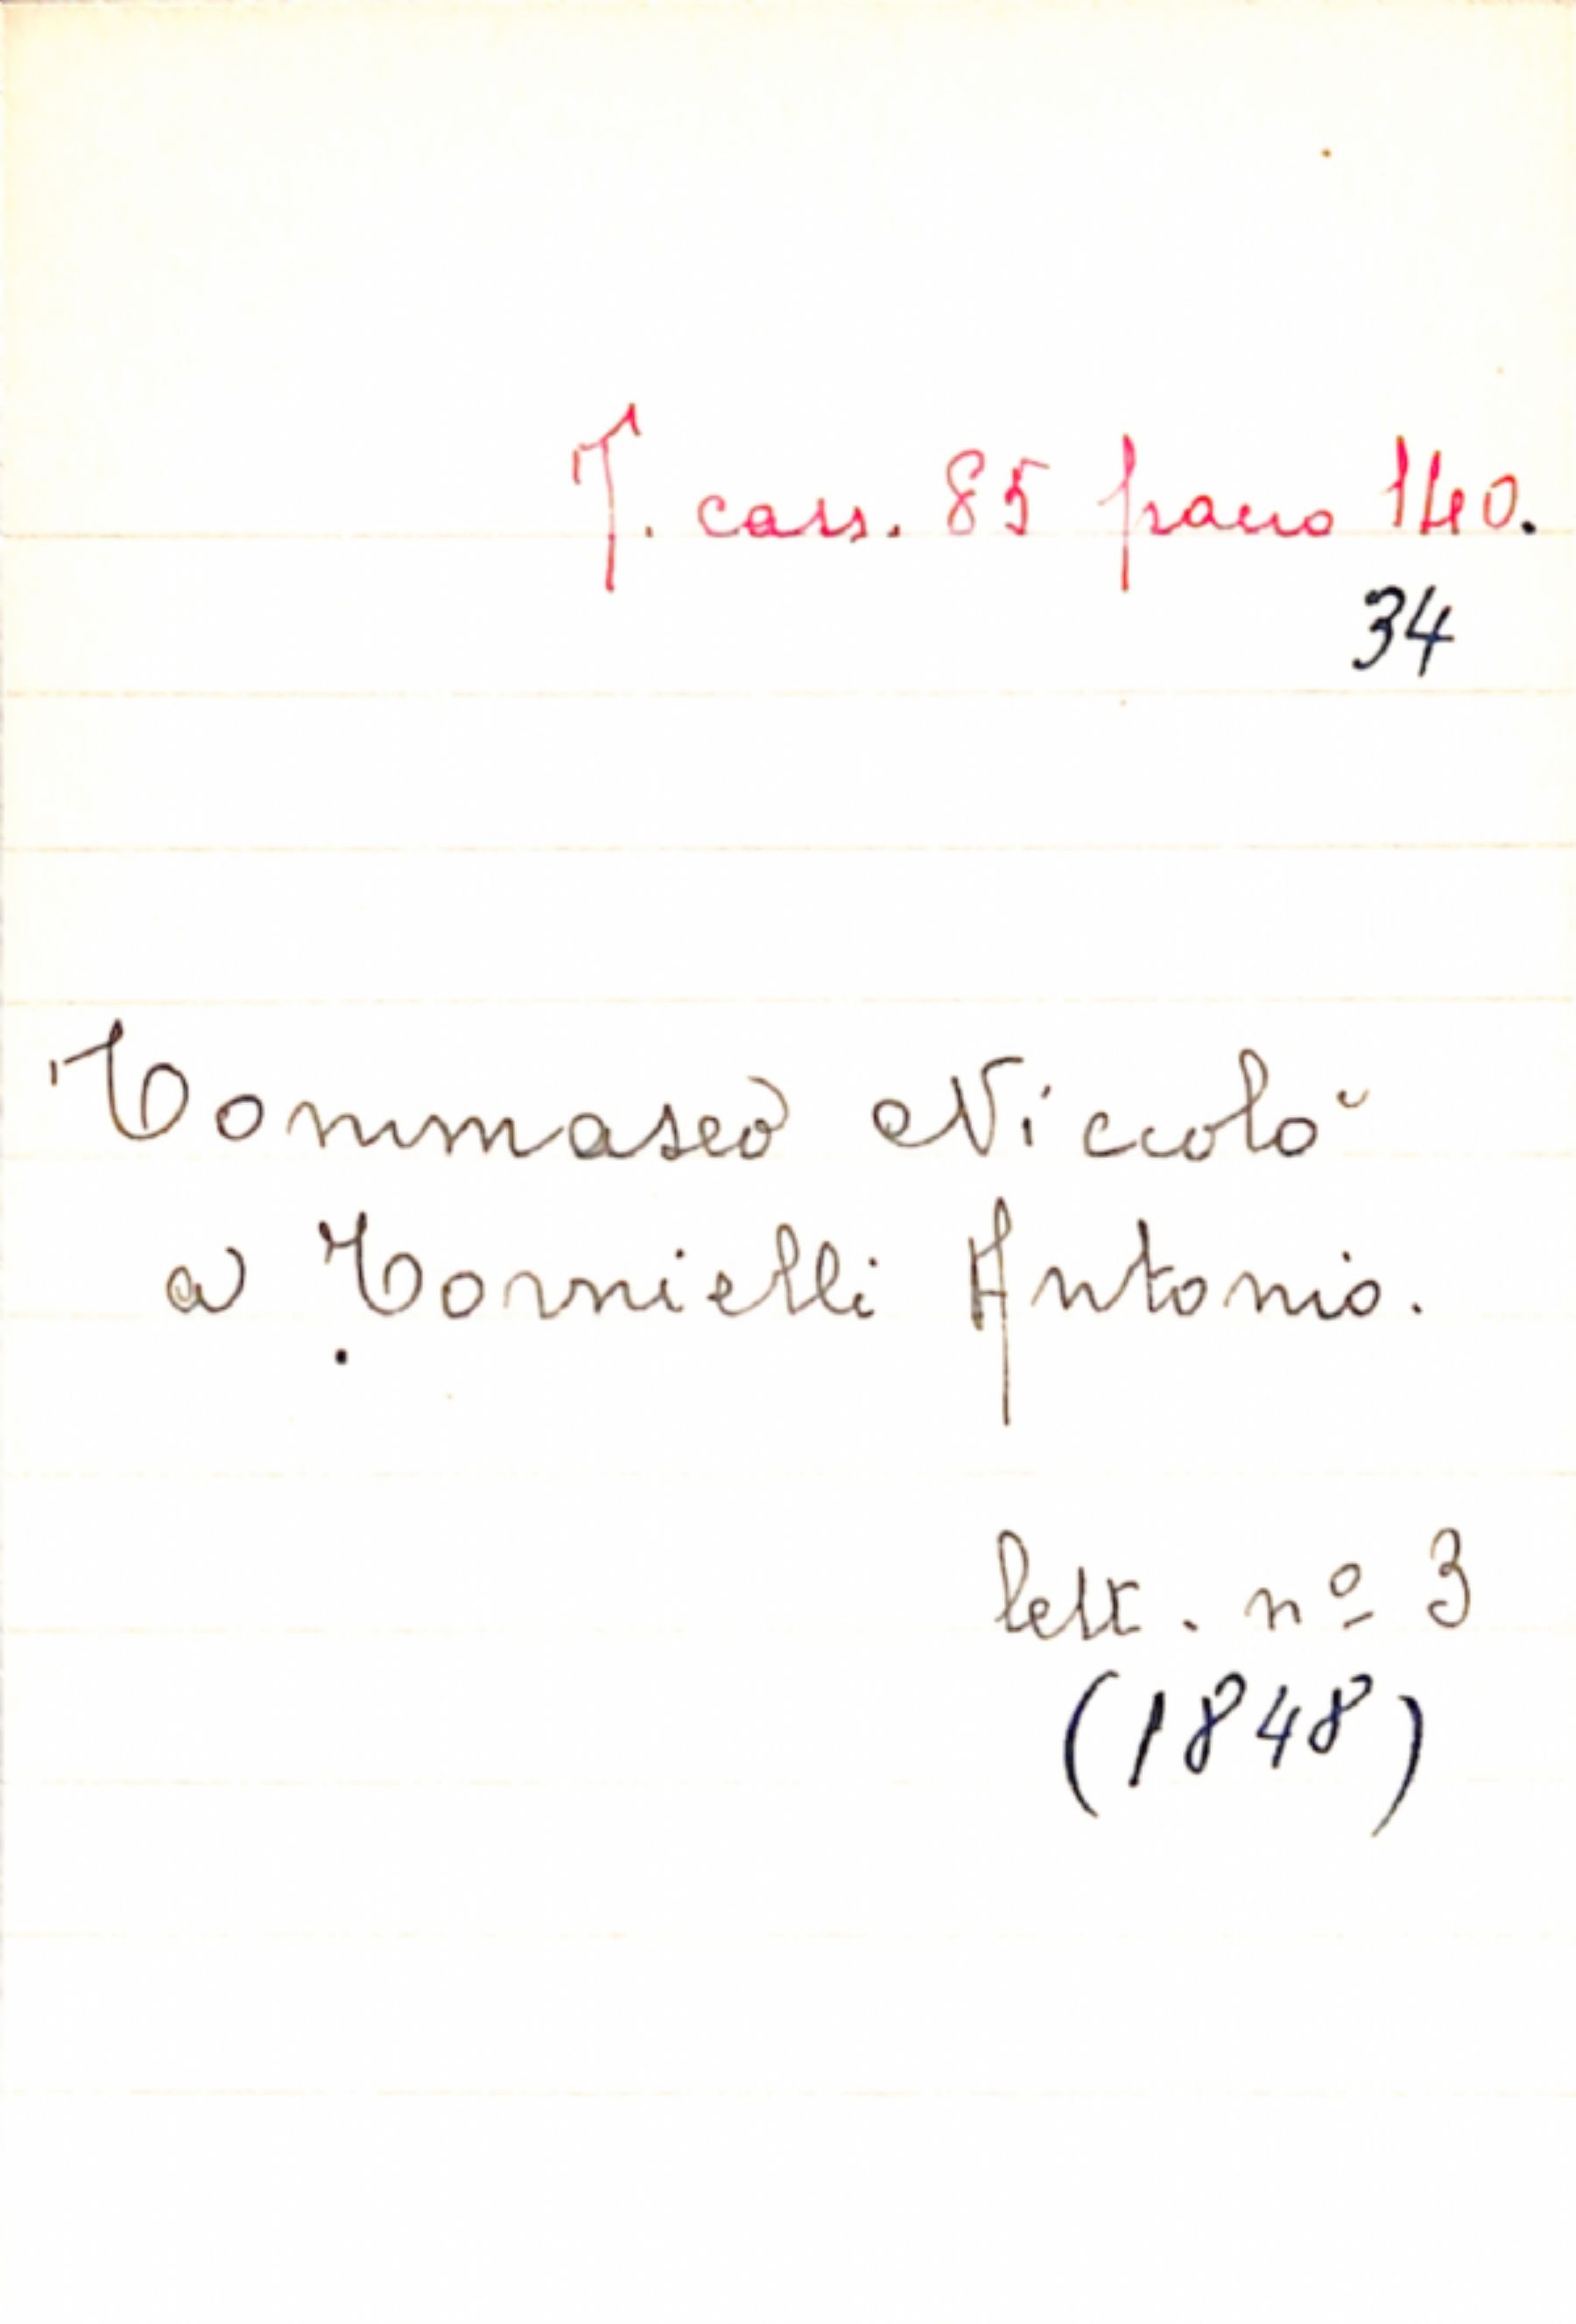 T. cass. 85 pacco 140.
34
Tommaseo Niccolò
a Tornielli Antonio.
lett. nº 3
(1848)